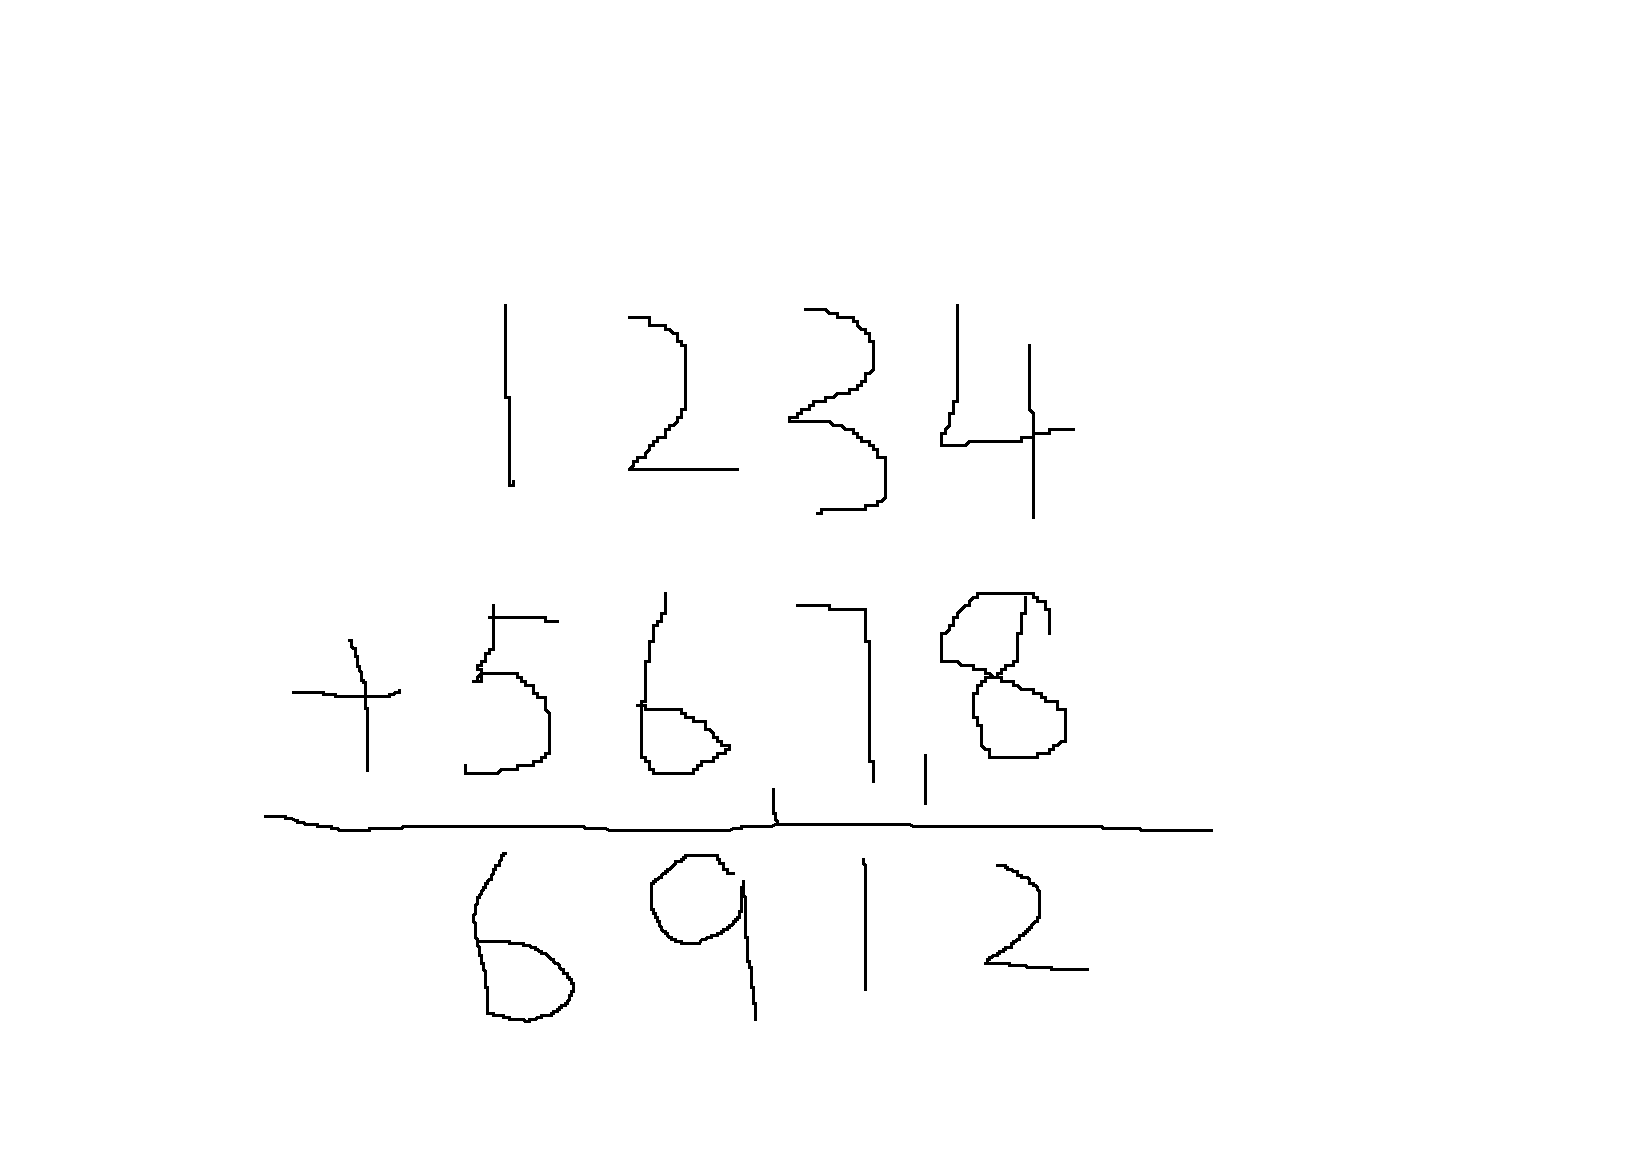 1234
+5678
11
6912